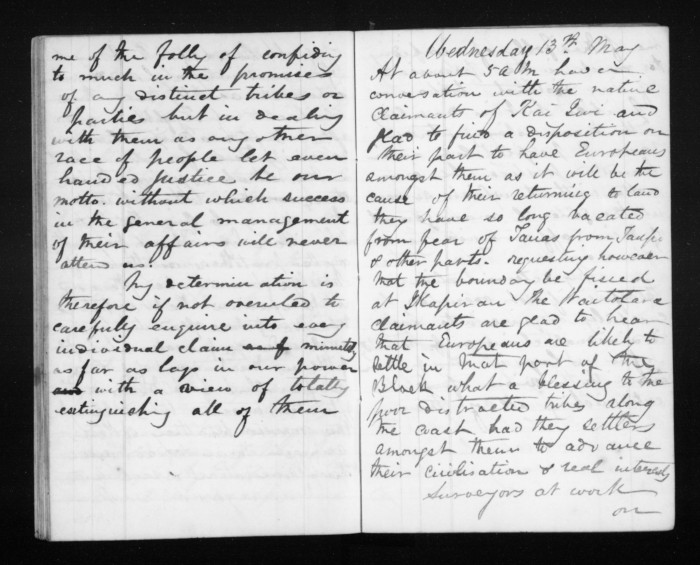 me of the folly of confiding
to much in the promises
of any distinct tribes or
parties but in dealing
with them as any other
race of people let even
handed justice be our
motto. without which success
in the general management
of their affairs will never
attend us.
My determination is
therefore if not overruled to
carefully enquire into every
individual claim as minutely
as far as lays in our power
with a view of totally
extinguishing all of them
Wednesday 13th May
At about 5 a m had a
conversation with the native
claimants of Kai Iwi and
glad to find a disposition on
their part to have Europeans
amongst them as it will be the
cause of their returning to land
they have so long vacated
from fear of Tauas from Taupo
& other parts. requesting however
that the boundary be fixed
at the Waitotara
claimants are glad to hear
that Europeans are likely to
settle in that part of the
Block what a blessing to the
poor distracted tribes along
the coast had they settlers
amongst them to advance
their civilisation & real interests
Surveyors at work
on